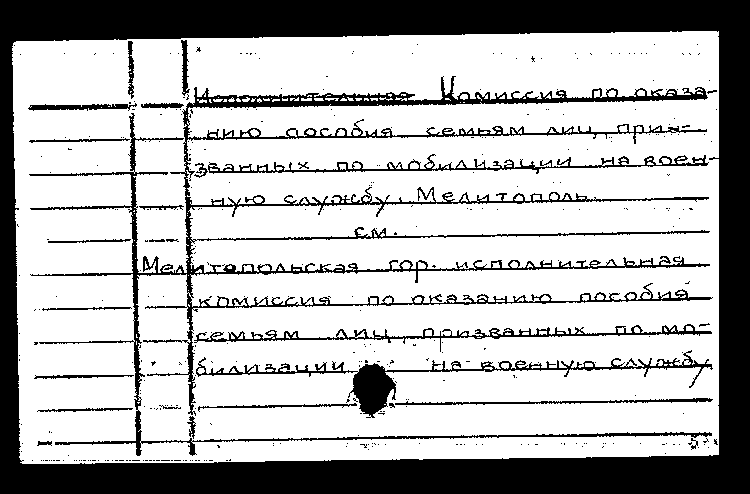 Исполнительная Комиссия по оказа-
нию пособия семьям лиц, приз-
званных по мобилизации на воен-
ную службу. Мелитополь
см.
Мелитопольская гор. исполнительная
комиссия по оказанию пособия
семьям лиц, призванных по мо-
билизации на военную службу